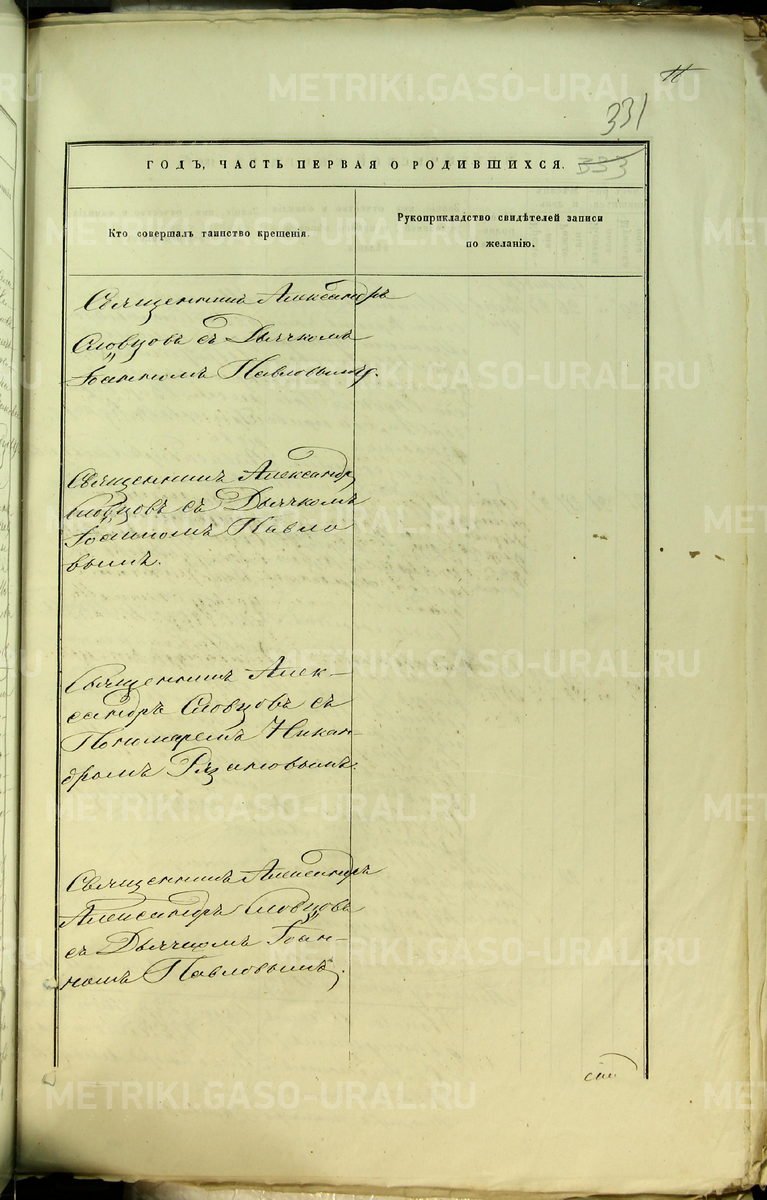 11
331
ГОДЪ, ЧАСТЬ ПЕРВАЯ О РОДИВШИХСЯ.
333
Кто совершалъ таинство крещенія.
Рукоприкладство свидѣтелей записи
по желанію.
Священникъ Александръ
Словцовъ съ Дьячкомъ
Іоанномъ Павловымъ.
Священникъ Александръ
Словцовъ съ Дьячкомъ
Іоанномъ Павло
вымъ.
Священникъ Алек-
сандръ Словцовъ съ
Пономаремъ Никан-
дромъ Рязановымъ.
Священникъ Александръ
Александръ Словцовъ
съ Дьячкомъ Іоан-
номъ Павловымъ.
METRIKI.GASO-URAL.RU